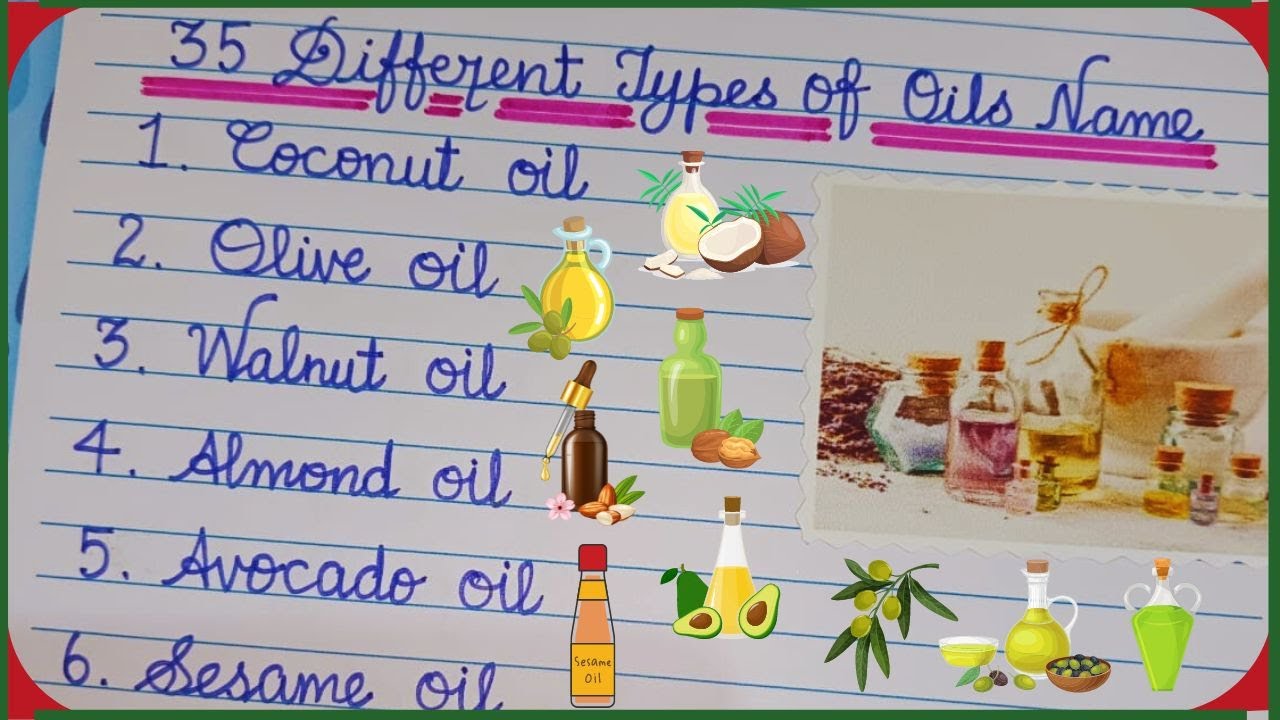 35 Different Types of Oils Name
1. Coconut oil
2. Olive oil
3. Walnut oil
4. Almond oil
5. Avocado oil
Sesame
Oil
6. Sesame oil